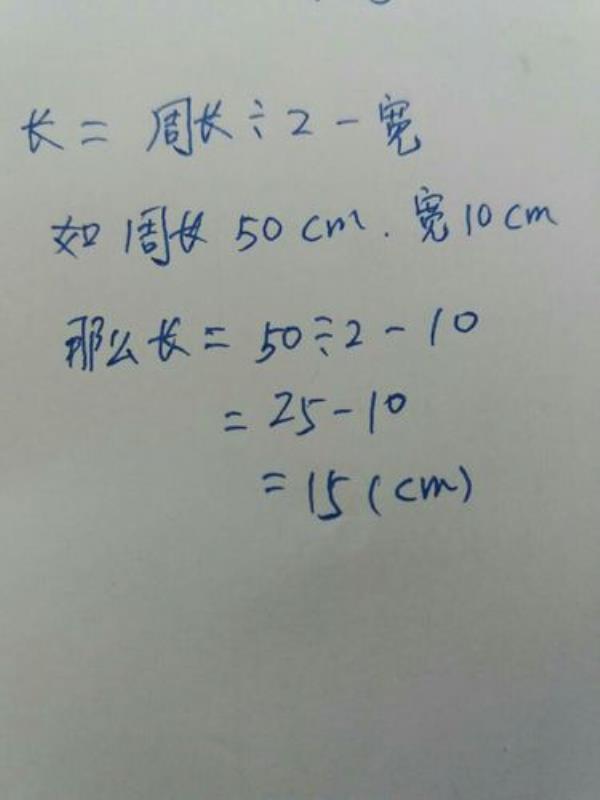 长=周长÷2-宽
如周长50cm.宽10cm
那么长=50÷2-10
=25-10
=15(cm)